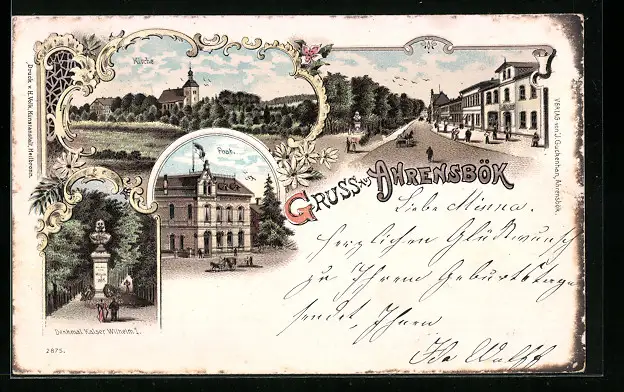 Kirche
Post.
Gruss aus Ahrensbök
Denkmal Kaiser Wilhelm I.
2875.
Druck v. H. Volk, Kunstanstalt, Heilbronn.
VERLAG von J. Guckenhan, Ahrensbök.
Liebe Minna.
Herzlichen Glückwunsch
zu Ihrem Geburtstage
sendet, Ihnen
Ida Wulff